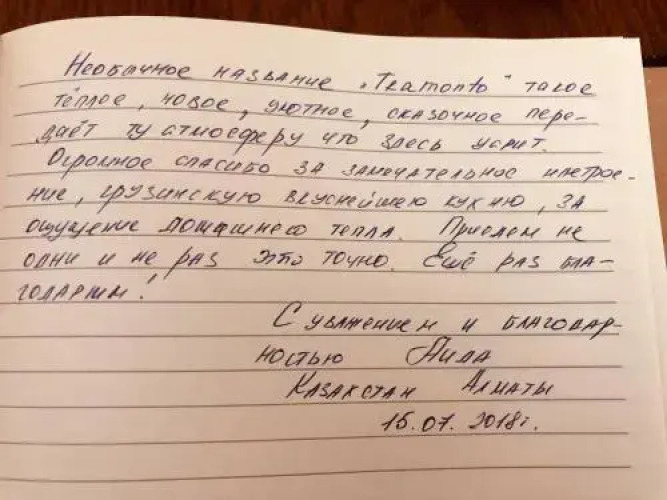 Необычное название „Tramonto" такое
тёплое, новое, уютное, сказочное пере-
даёт ту атмосферу что здесь царит.
Огромное спасибо за замечательное настрое-
ние, грузинскую вкуснейшею кухню, за
ощущение домашнего тепла. Придем не
одни и не раз это точно. Ещё раз бла-
годарим!
С уважением и благодар-
ностью Лида
Казакстан Алматы
15.07.2018г.